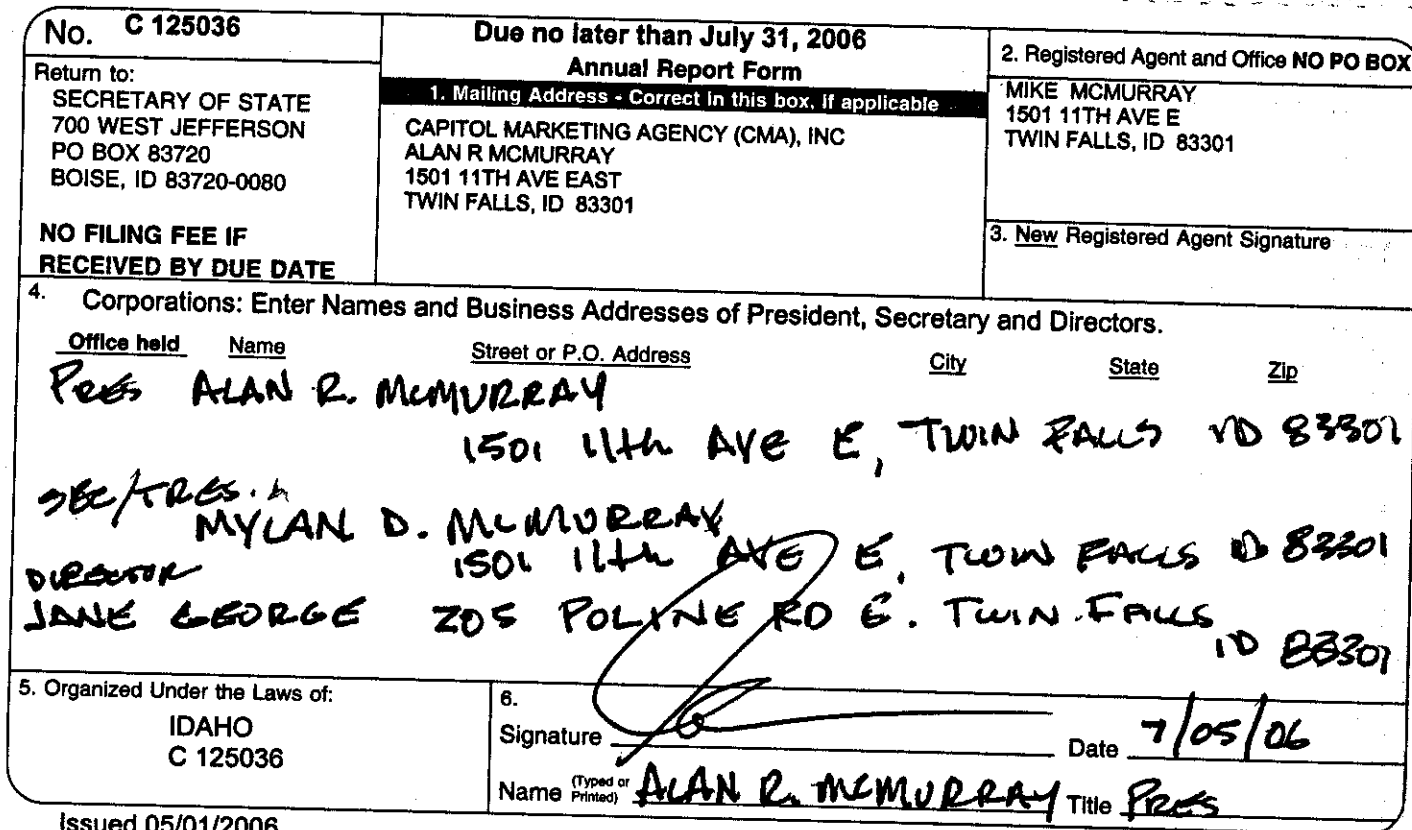 No. C 125036
Return to:
SECRETARY OF STATE
700 WEST JEFFERSON
PO BOX 83720
BOISE, ID 83720-0080
NO FILING FEE IF
RECEIVED BY DUE DATE
Due no later than July 31, 2006
Annual Report Form
1. Mailing Address - Correct in this box, if applicable
CAPITOL MARKETING AGENCY (CMA), INC
ALAN R MCMURRAY
1501 11TH AVE EAST
TWIN FALLS, ID 83301
2. Registered Agent and Office NO PO BOX
MIKE MCMURRAY
1501 11TH AVE E
TWIN FALLS, ID 83301
3. New Registered Agent Signature
4. Corporations: Enter Names and Business Addresses of President, Secretary and Directors.
Office held Name Street or P.O. Address City State Zip
PRES ALAN R. MCMURRAY
1501 11th AVE E, TWIN FALLS ID 83301
SEC/TRES.
MYLAN D. MCMURRAY
1501 11th AVE E, TWIN FALLS ID 83301
DIRECTOR
JANE GEORGE 205 POLINE RD E. TWIN FALLS
ID 83301
5. Organized Under the Laws of:
IDAHO
C 125036
6.
Signature Date 7/05/06
Name (Typed or Printed) ALAN R. MCMURRAY Title PRES
Issued 05/01/2006